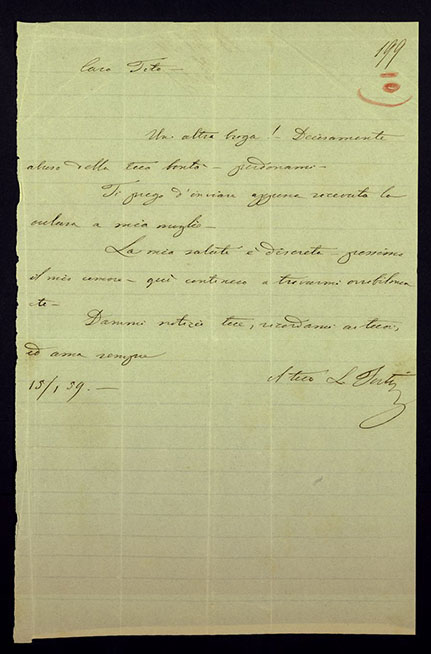 199
10
Caro Tito
Un altra briga! Decisamente
abuso della tua bontà – perdonami –
Ti prego d'inviare appena ricevuta la
inclusa a mia moglie –
La mia salute è discreta – pessimo
il mio umore – quì continuo a trovarmi orribilmen
te –
Dammi notizie tue, ricordami ai tuoi,
ed ama sempre
Il tuo L
15/1 59. –